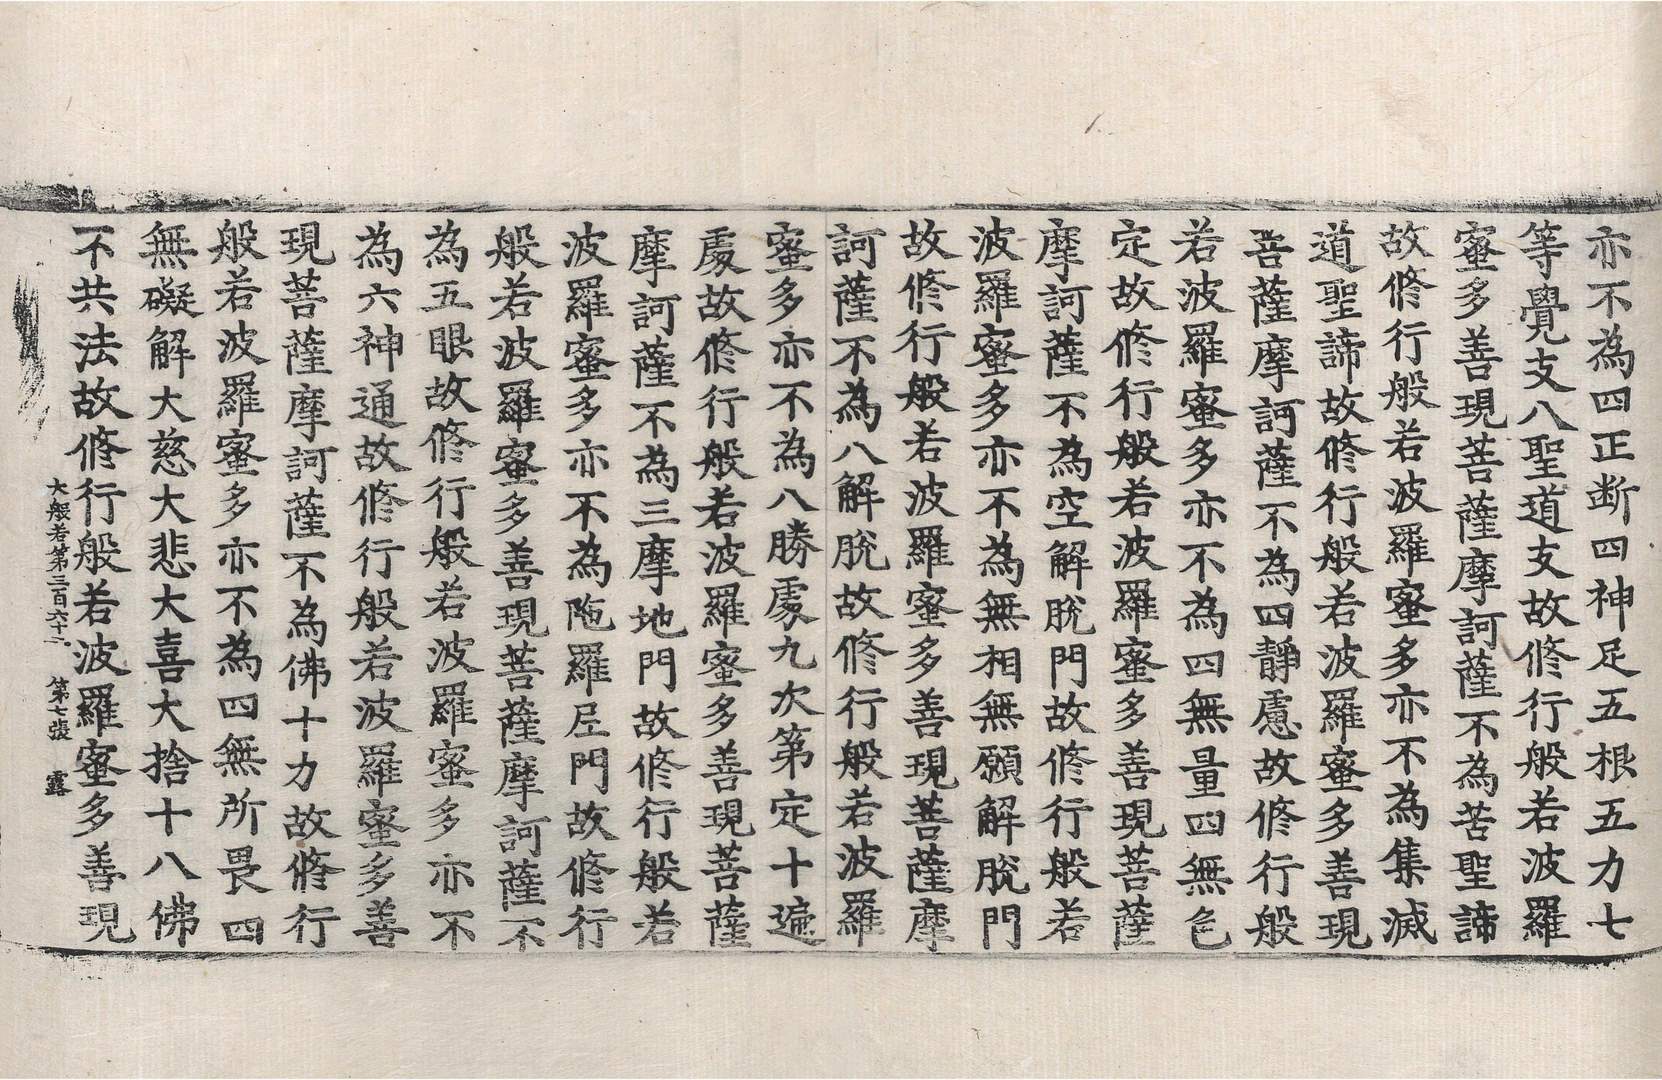 亦不為四正断四神足五根五力七
等覺支八聖道支故修行般若波羅
蜜多善現菩薩摩訶薩不為苦聖諦
故修行般若波羅蜜多亦不為集滅
道聖諦故修行般若波羅蜜多善現
菩薩摩訶薩不為四靜慮故修行般
若波羅蜜多亦不為四無量四無色
定故修行般若波羅蜜多善現菩薩
摩訶薩不為空解脫門故修行般若
波羅蜜多亦不為無相無願解脫門
故修行般若波羅蜜多善現菩薩摩
訶薩不為八解脫故修行般若波羅
蜜多亦不為八勝處九次第定十遍
處故修行般若波羅蜜多善現菩薩
摩訶薩不為三摩地門故修行般若
波羅蜜多亦不為陁羅尼門故修行
般若波羅蜜多善現菩薩摩訶薩不
為五眼故修行般若波羅蜜多亦不
為六神通故修行般若波羅蜜多善
現菩薩摩訶薩不為佛十力故修行
般若波羅蜜多亦不為四無所畏四
無礙解大慈大悲大喜大捨十八佛
不共法故修行般若波羅蜜多善現
大般若第三百六十二 第七張 露